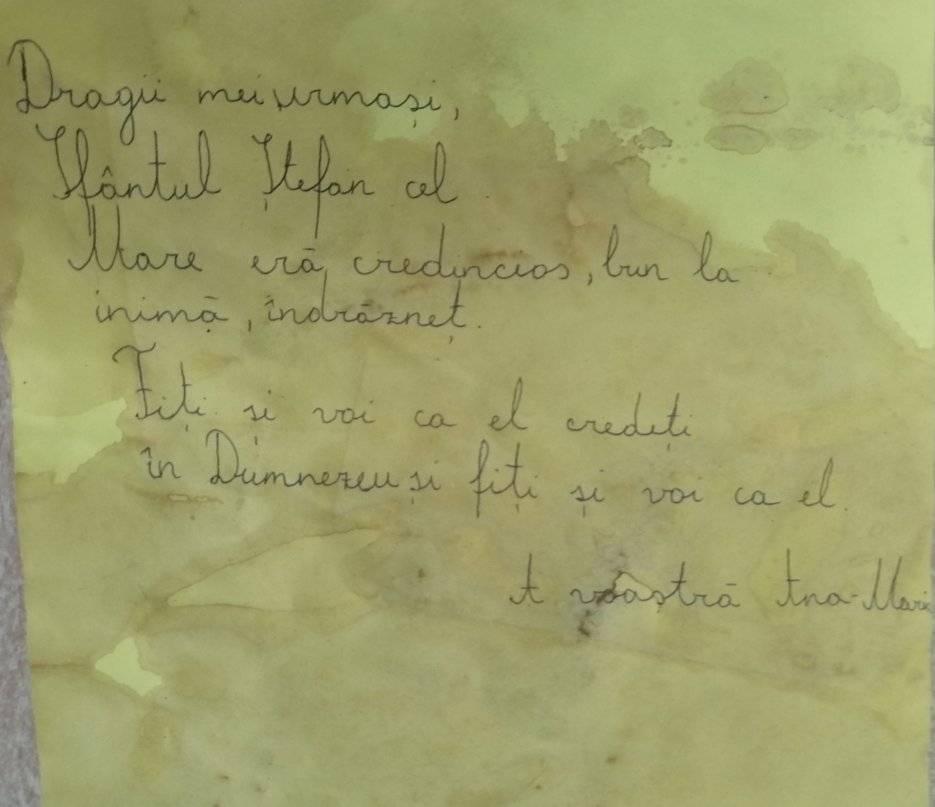 Dragii mei urmași,
Sfântul Ștefan cel
Mare eră credincios, bun la
inimă, îndrăzneț.
Fiți și voi ca el credeți
în Dumnezeu și fiți și voi ca el.
A voastră Ana-Maria